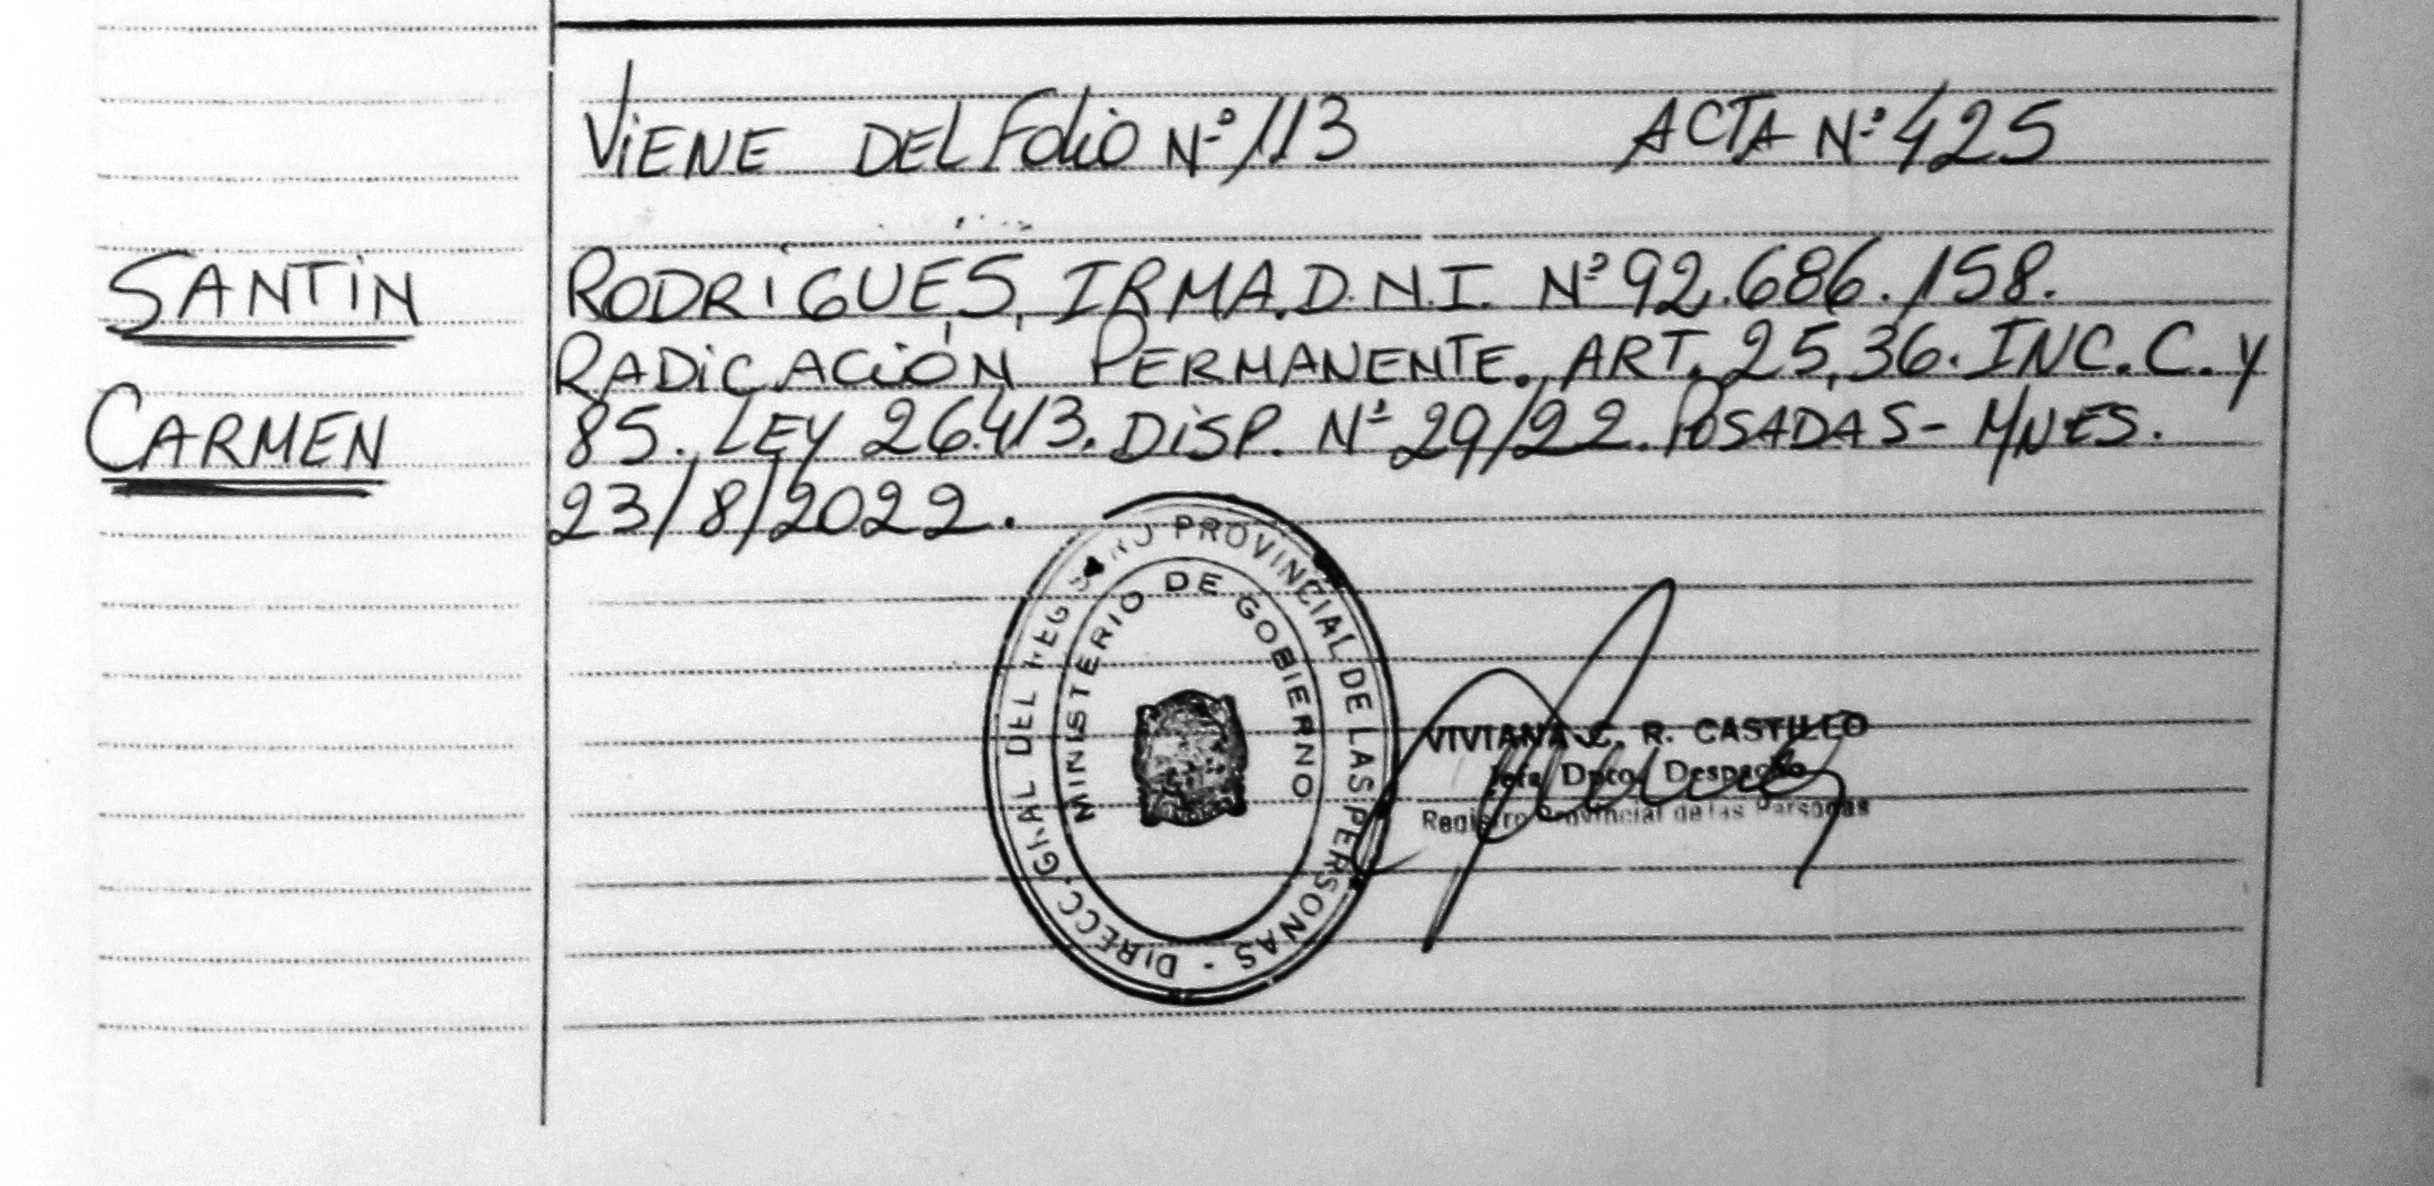 ViENE DEL Folio Nº 113 ACTA Nº 425
SANTiN
CARMEN
RODRiGUES, IRMA. D.N.I. Nº 92.686.158.
RADiCACiÓN PERMANENTE. ART. 25,36. INC. C. y
85. LEY 26.413. DiSP. Nº 29/22. POSADAS - MNES.
23/8/2022.
DIRECC. GRAL DEL REGISTRO PROVINCIAL DE LAS PERSONAS -
MINISTERIO DE GOBIERNO
VIVIANA C. R. CASTILLO
Jefa Dpto. Despacho
Registro Provincial de las Personas